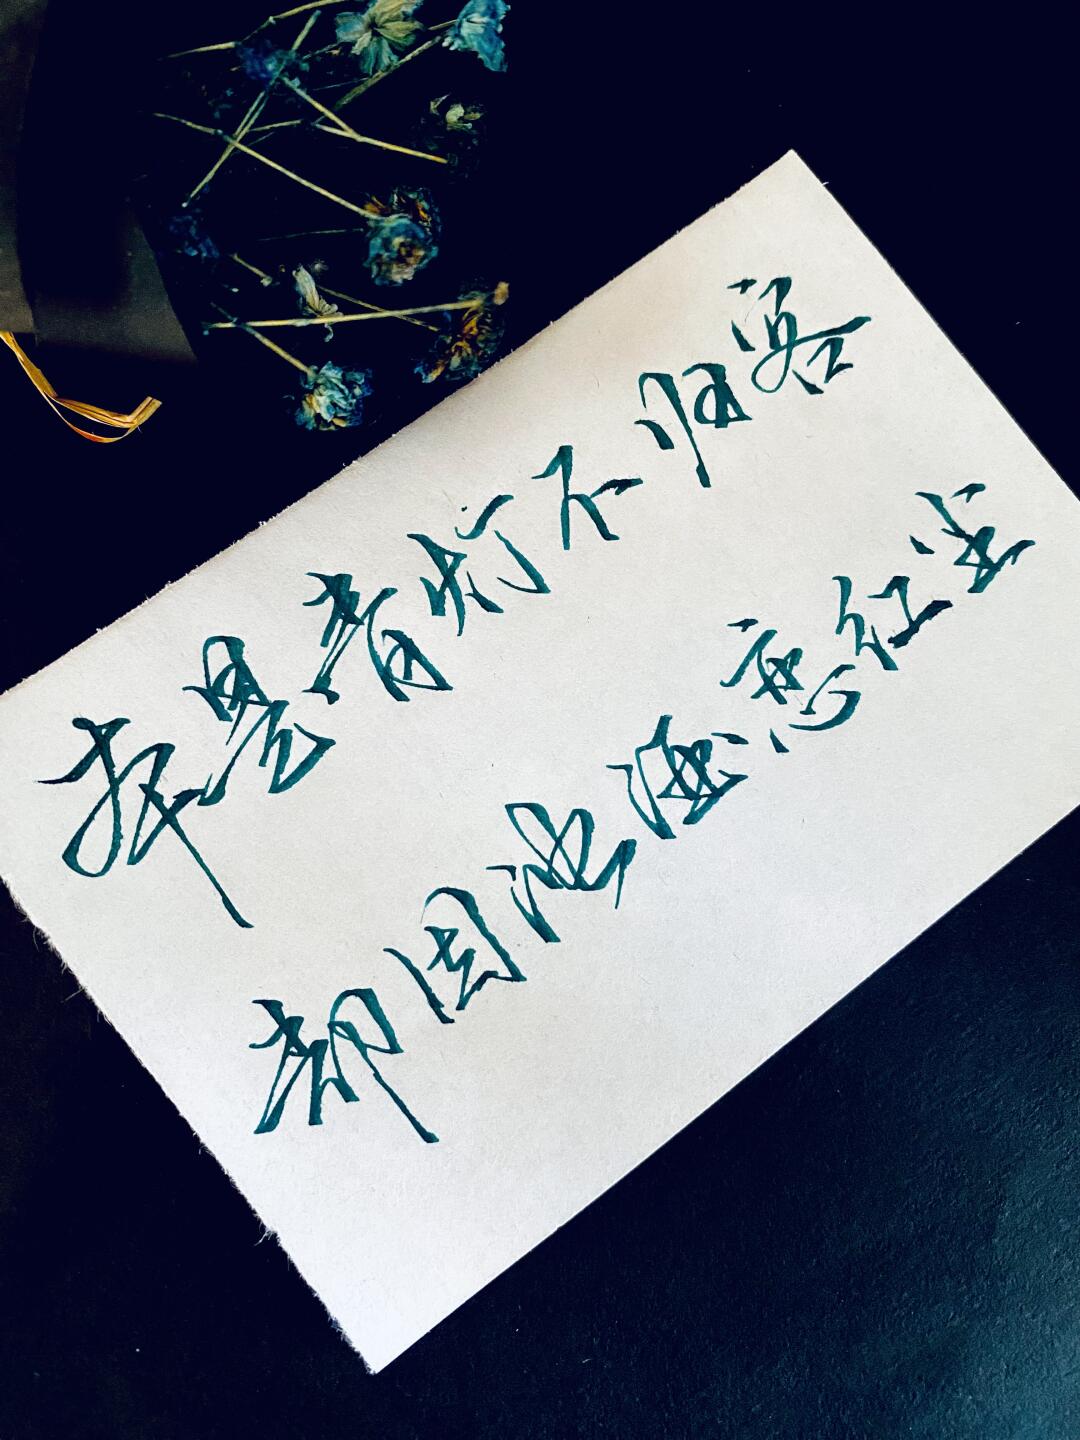 本是青灯不归客
却因浊酒恋红尘